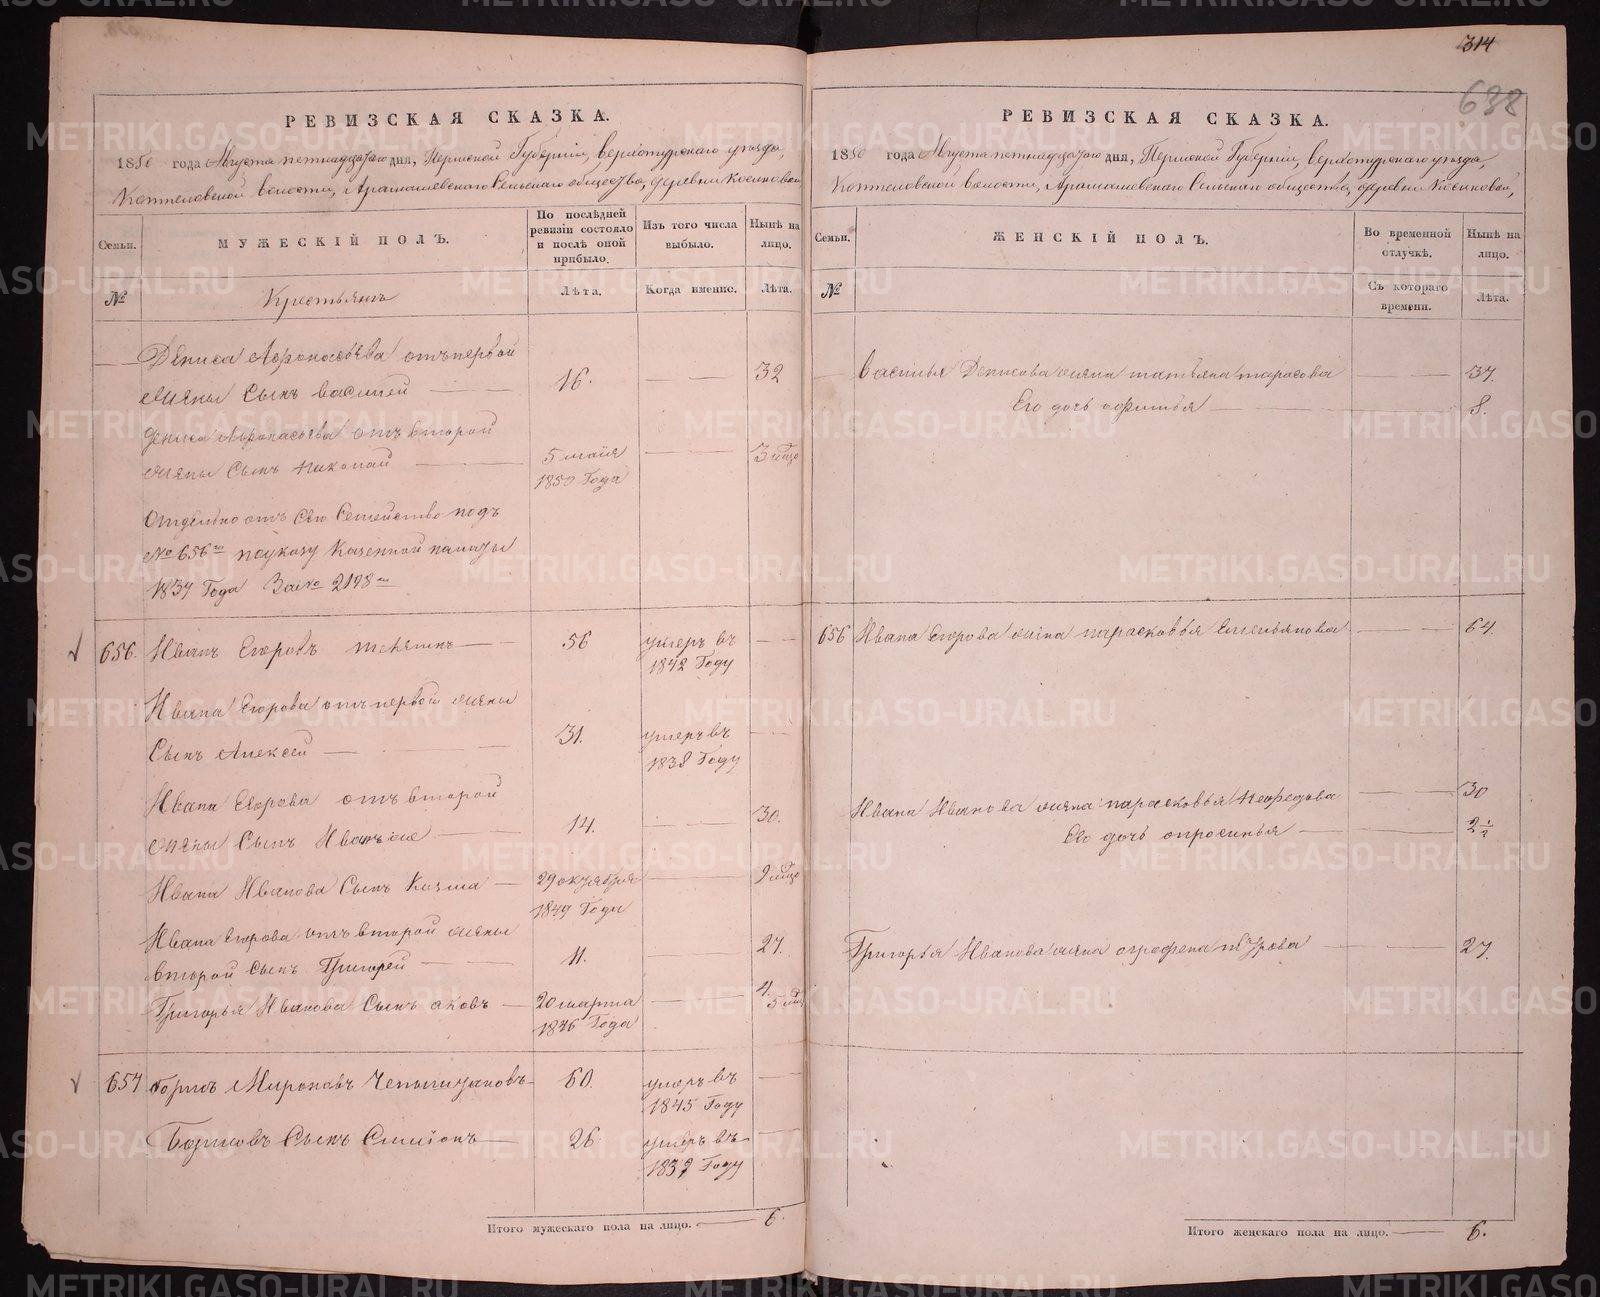 314
638
РЕВИЗСКАЯ СКАЗКА.
1850 года Августа пятнадцатого дня, Пермской Губернии, Верхотурскаго уезда,
волости, Арамашевского Сельского общества, деревни Косиковой
Семьи.
МУЖЕСКІЙ ПОЛЪ.
По послѣдней ревизіи состояло и послѣ оной прибыло.
Изъ того числа выбыло.
Нынѣ на лицо.
№
Крестьянъ
Лѣта.
Когда именно.
Лѣта.
Дениса Афонасьева отъ первой
жены Сынъ Василей — 16. — 32
Дениса Афонасьева отъ второй
жены Сынъ Николай — 5 маія — 3
1850 Года
Отдельно отъ Сего Семейство подъ
№ 656 по указу Казенной палаты
1837 Года За № 2198
656. Иванъ Егоровъ — 56 умеръ въ —
1842 Году
Ивана Егорова отъ первой жены
Сынъ Алексей — 31. умеръ въ —
1838 Году
Ивана Егорова отъ второй
жены Сынъ Иванъ же — 14. — 30.
Ивана Иванова Сынъ Козма — 29 октября — 9
1849 Года
Ивана Егорова отъ второй жены
второй Сынъ Григорей — 11. — 27.
Григорья Иванова Сынъ аковъ — 20 марта — 4. 5
1846 Года
657 Борисъ Мироновъ — 60. умеръ въ —
1845 Году
Борисовъ Сынъ Симіонъ — 26 умеръ въ —
1837 Году
Итого мужескаго пола на лицо. — 6.
РЕВИЗСКАЯ СКАЗКА.
1850 года Августа пятнадцатого дня, Пермской Губернии, Верхотурскаго уезда,
волости, Арамашевского Сельского общества, деревни Косиковой,
Семьи.
ЖЕНСКІЙ ПОЛЪ.
Во временной отлучкѣ.
Нынѣ на лицо.
№
Съ котораго времени.
Лѣта.
Василья Денисова жена татьяна тарасова — 37.
Его дочь офимья — 8.
656 Ивана Егорова жена парасковья Емельянова — 64.
Ивана Иванова жена парасковья Нефедова — 30
Его дочь опросинья — 2 1/2
Григорья Иванова жена огрофена — 27.
Итого женскаго пола на лицо. — 6.
METRIKI.GASO-URAL.RU